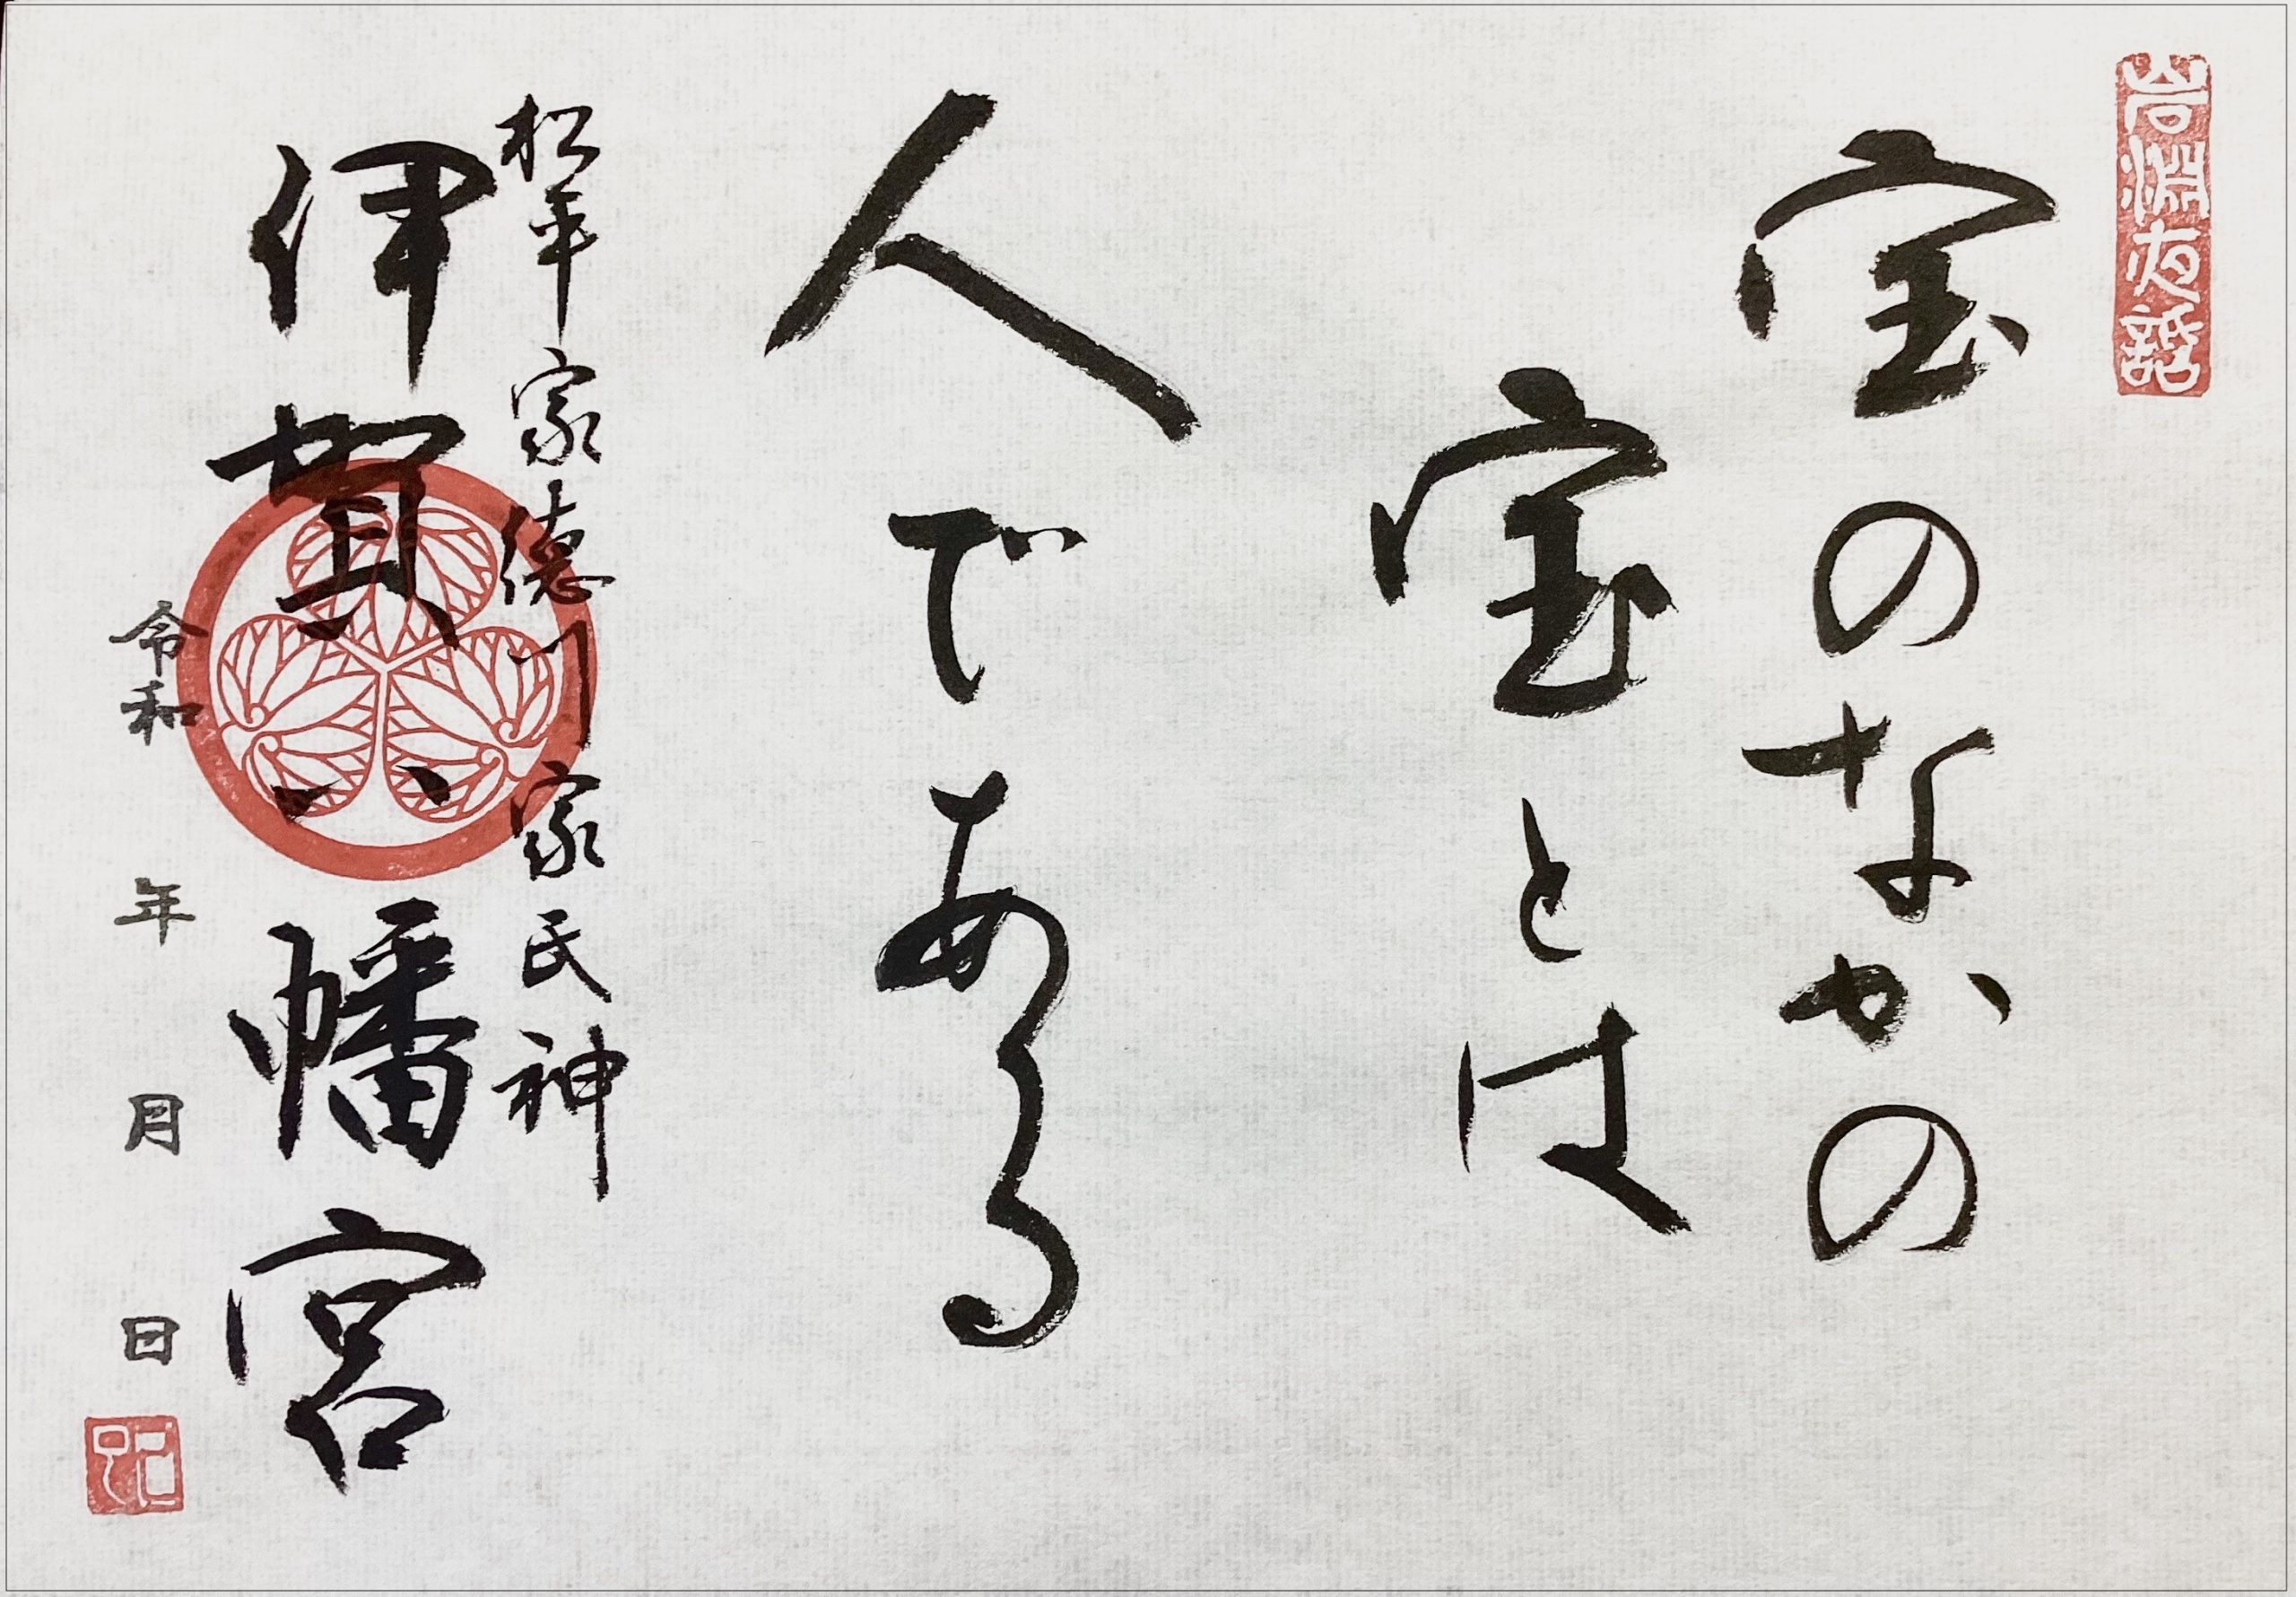 岩淵夜話
宝のなかの
宝とは
人である
松平家徳川家氏神
伊賀八幡宮
令和 年 月 日